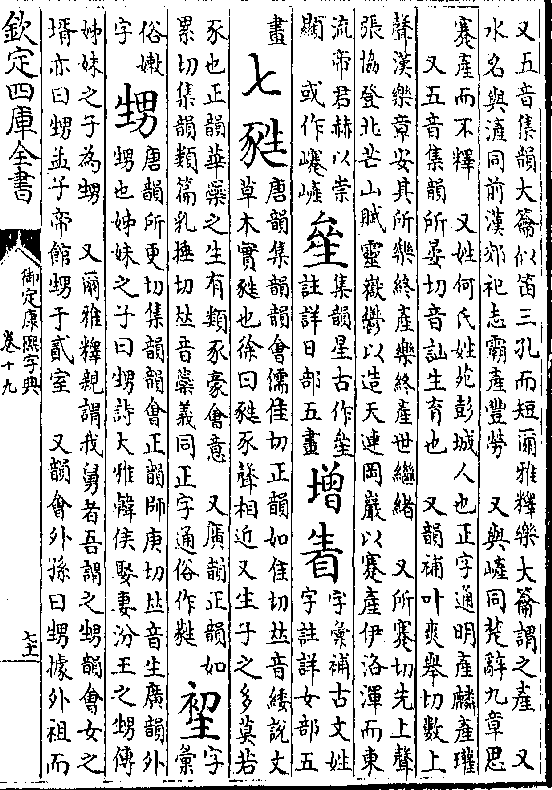 又五音集韻大籥似笛三孔而短爾雅釋樂大籥謂之產　又
水名與滻同前漢郊祀志霸產豐勞　又與嵼同楚辭九章思
蹇產而不釋　又姓何氏姓苑彭城人也正字通明產麟產瓘
又五音集韻所晏切音訕生育也　又韻補叶爽舉切數上
聲漢樂章安其所樂終產樂終產世繼緒　又所蹇切先上聲
張協登北芒山賦靈嶽鬱以造天連岡巖以蹇產伊洛渾而東
流帝君赫以崇
顯　或作㠘嵼
集韻星古作
註詳日部五畫
增
字彙補古文姓
字註詳女部五
畫
七
甤
唐韻集韻韻會儒佳切正韻如佳切𠀤音緌說文
草木實甤也徐曰甤豕聲相近又生子之多莫若
豕也正韻華蘂之生有類豕豪會意　又廣韻正韻如
累切集韻類篇乳捶切𠀤音蘂義同正字通俗作
字彙
俗嫩
字
甥
唐韻所更切集韻韻會正韻師庚切𠀤音生廣韻外
甥也姊妹之子曰甥詩大雅韓侯娶妻汾王之甥傳
姊妹之子為甥　又爾雅釋親謂我舅者吾謂之甥韻會女之
壻亦曰甥孟子帝館甥于貳室　又韻會外孫曰甥據外祖而
欽定四庫全書
御定康熙字典
卷十九